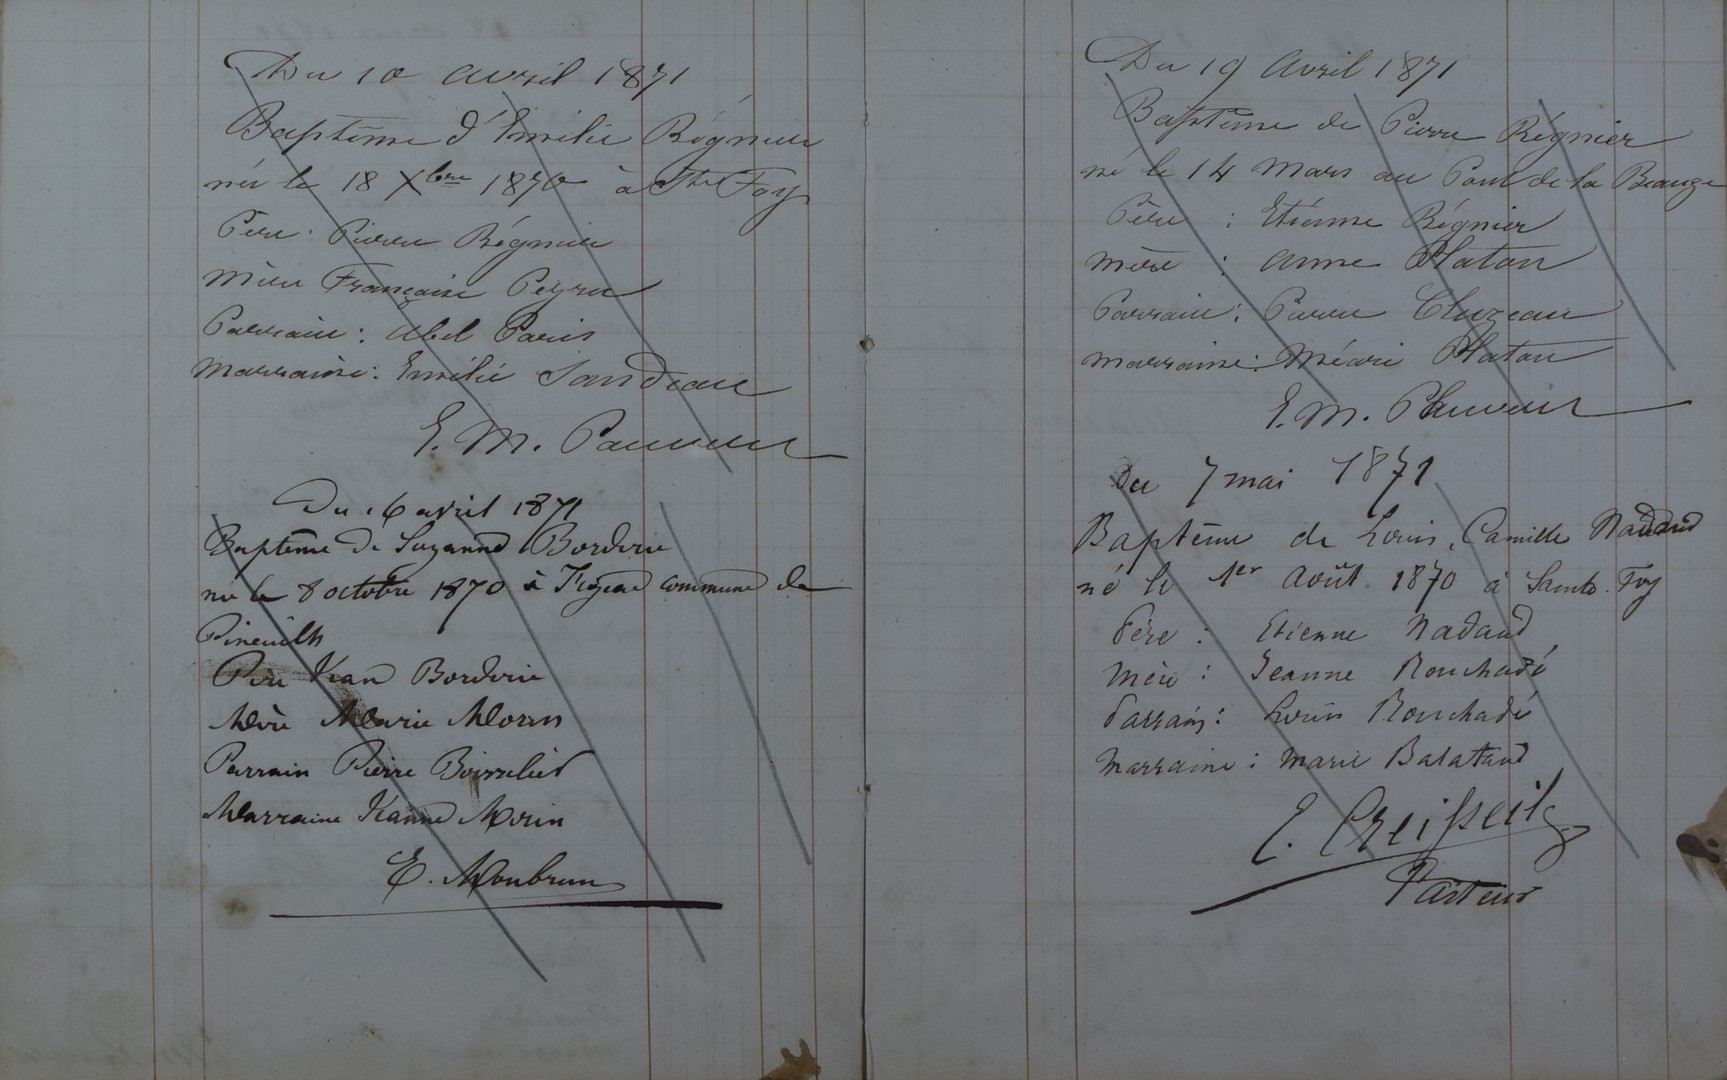 Du 10 Avril 1871
Baptême d'Emilie Régnier
née le 18 Xbre 1870 à Ste Foy
Père: Pierre Régnier
Mère Françoise Peyre
Parrain: Abel Paris
Marraine: Emélie Sandeau
E. M.
Du 16 avril 1871
Baptême de Suzanne Borderie
née le 8 octobre 1870 à commune de
Pineuilh
Père Jean Borderie
Mère Marie Morin
Parrain Pierre Boisselier
Marraine Jeanne Morin
E. Monbrun
Du 19 Avril 1871
Baptême de Pierre Régnier
né le 14 Mars au Pont de la Beauze
Père : Etienne Régnier
Mère : Anne Platon
Parrain : Pierre Cluzeau
Marraine : Méari Platon
E. M.
Du 7 mai 1871
Baptême de Louis, Camille Nadaud
né le 1er Août 1870 à Sainte Foy
Père : Etienne Nadaud
Mère : Jeanne Rouchadé
Parrain : Louis Rouchadé
Marraine : Marie Balataud
E. Creisseil
Pasteur